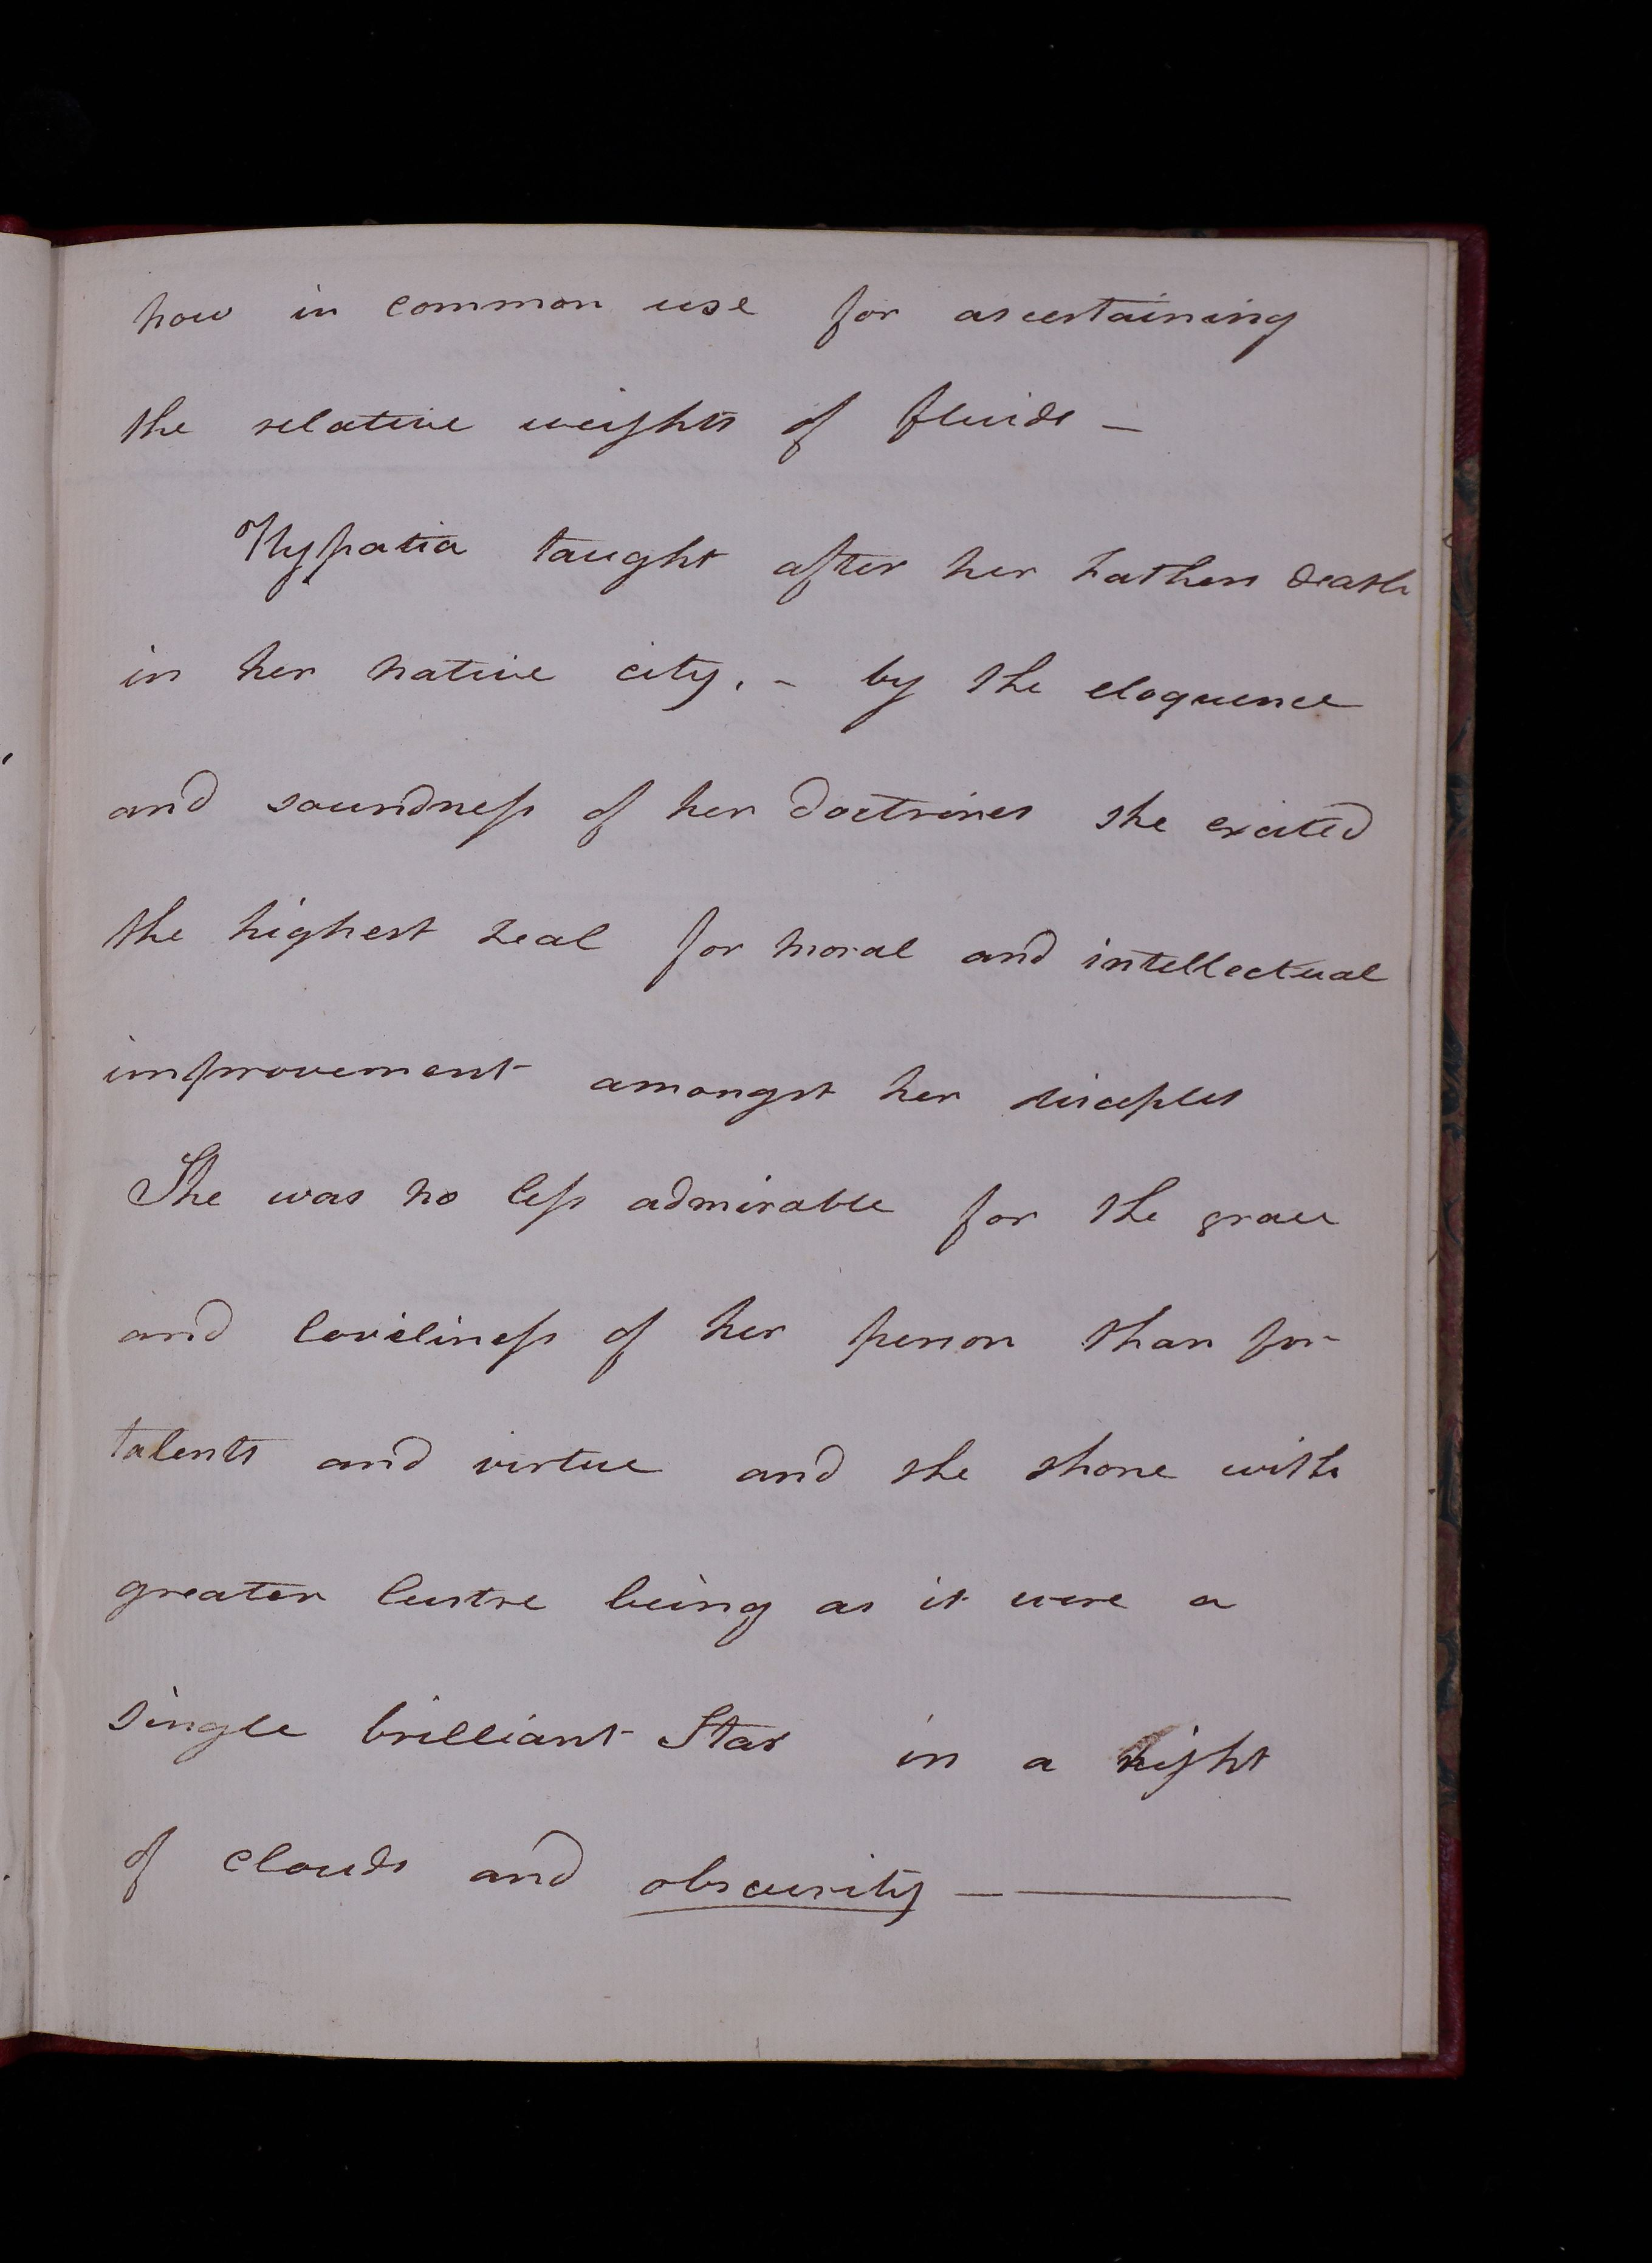 now in common use for ascertaining
the relative weights of fluids –
Hypatia taught after her Fathers death
in her native city. – by the eloquence
and soundness of her doctrines she excited
the highest zeal for moral and intellectual
improvement amongst her disciples
She was no less admirable for the grace
and loveliness of her person than for
talents and virtue and she shone with
greater lustre being as it were a
single brilliant Star in a night
of clouds and obscurity –